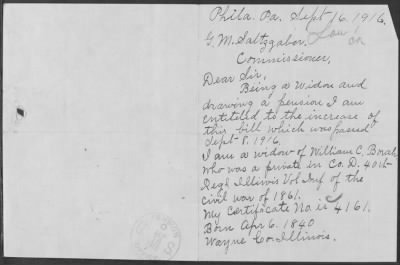 Phila. Pa. Sept 16. 1916.
G. M. Saltzgaber,
Commissioner,
Dear Sir,
Being a Widow and
drawing a pension I am
entitled to the increase of
this bill which was passed
Sept 8. 1916.
I am a widow of William C.
who was a private in Co. D. 40th
Regt Illinois Vol Inf of the
civil war of 1861.
My Certificate No. is 4161.
Born Apr 6. 1840
Wayne Co. Illinois.